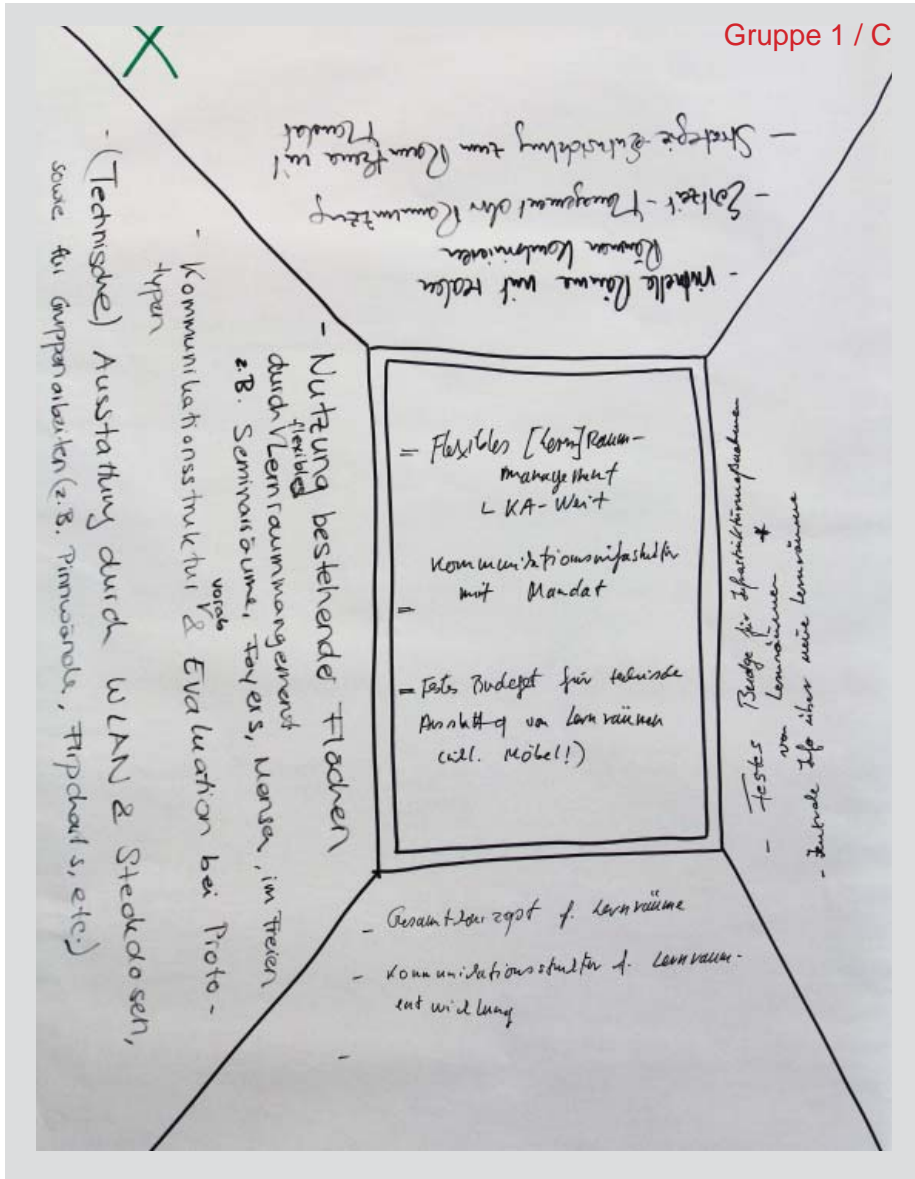 Gruppe 1 / C
X
- Strategie-Entwicklung zum Raumthema mit
Mandat
- Echtzeit-Management der Raumnutzung
- virtuelle Räume mit realen
Räumen kombinieren
- Nutzung bestehende Flächen
durch flexibles Lernraummangement
z.B. Seminarräume, Foyers, Mensa, im Freien
- Kommunikationsstruktur & vorab Evaluation bei Proto-
typen
- (Technische) Ausstattung durch WLAN & Steckdosen,
sowie für Gruppenarbeiten (z.B. Pinnwände, Flipcharts, etc.)
= Flexibles [Lern]Raum-
management
L KA-Weit
=
Kommunikationsinfrastruktur
mit Mandat
= Festes Budget für technische
Ausstattung von Lernräumen
(inkl. Möbel!)
- Festes Budge für Infrastrukturmaßnahmen
von Lernräumen *
- Zentrale Info über neue Lernräume
- Gesamtkonzept f. Lernräume
- Kommunikationsstruktur f. Lernraum-
entwicklung
-